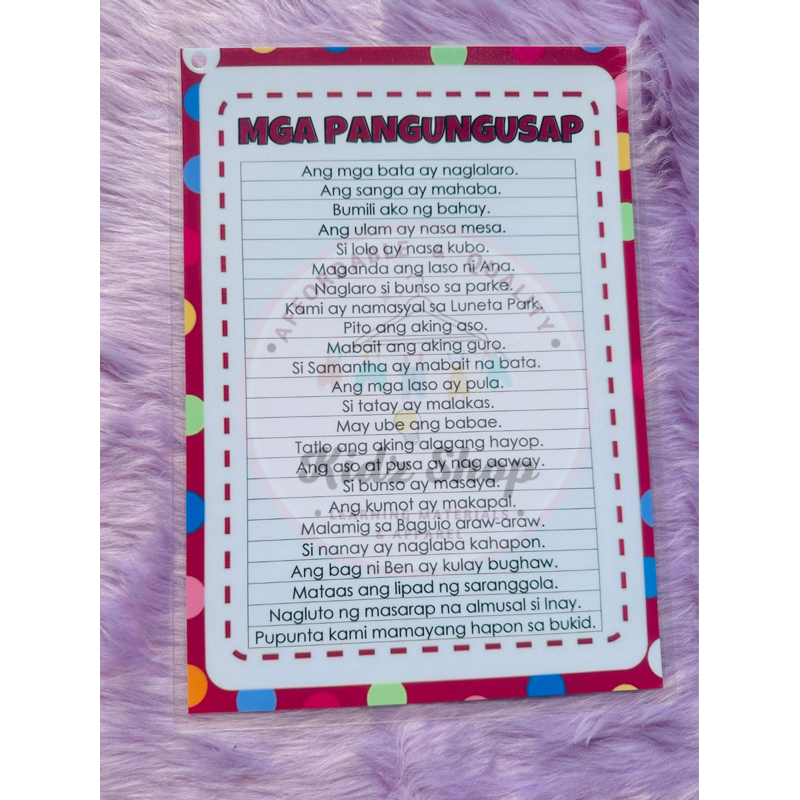 MGA PANGUNGUSAP
Ang mga bata ay naglalaro.
Ang sanga ay mahaba.
Bumili ako ng bahay.
Ang ulam ay nasa mesa.
Si lolo ay nasa kubo.
Maganda ang laso ni Ana.
Naglaro si bunso sa parke.
Kami ay namasyal sa Luneta Park.
Pito ang aking aso.
Mabait ang aking guro.
Si Samantha ay mabait na bata.
Ang mga laso ay pula.
Si tatay ay malakas.
May ube ang babae.
Tatlo ang aking alagang hayop.
Ang aso at pusa ay nag aaway.
Si bunso ay masaya.
Ang kumot ay makapal.
Malamig sa Baguio araw-araw.
Si nanay ay naglaba kahapon.
Ang bag ni Ben ay kulay bughaw.
Mataas ang lipad ng saranggola.
Nagluto ng masarap na almusal si Inay.
Pupunta kami mamayang hapon sa bukid.
AFFORDABLE & QUALITY
Kidz Shop
LEARNING MATERIALS
& APPAREL